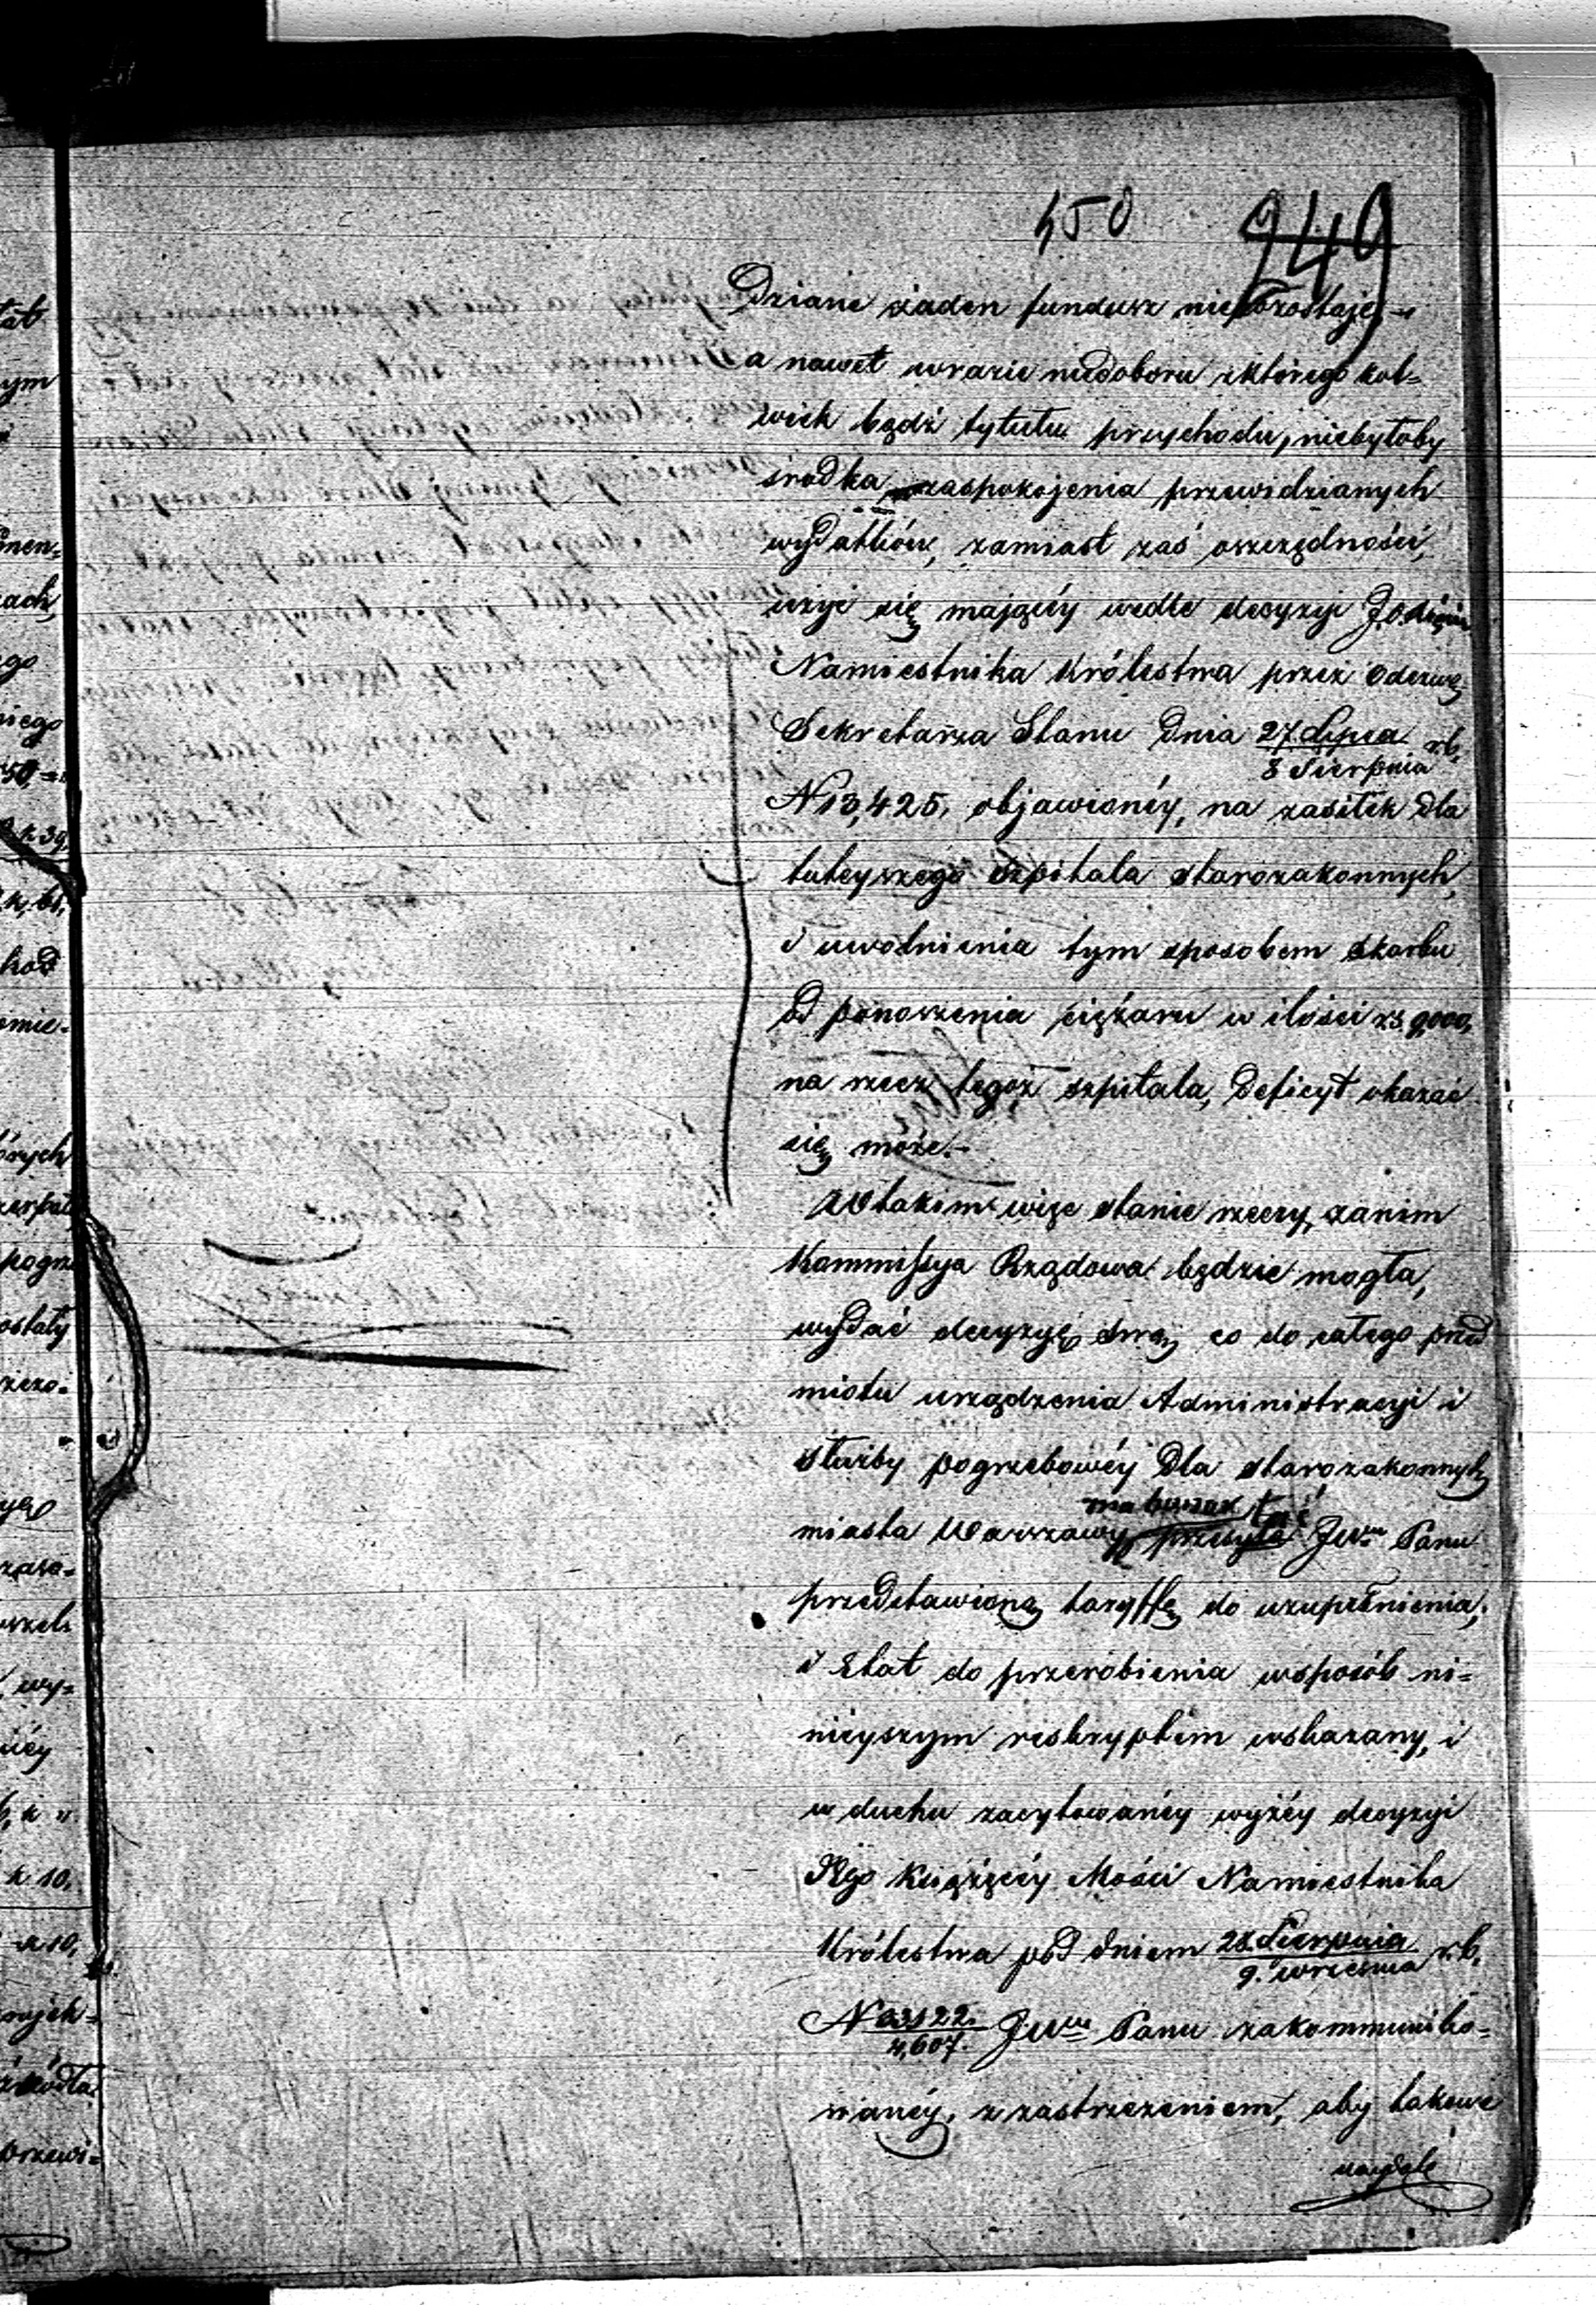 450 949
dziane żaden fundusz niepozostaje, -
a nawet wrazie niedoboru z którego kol=
wiek bądź tytułu przychodu, niebyłoby
środka zaspokojenia przewidzianych
wydatków, zamiast zaś oszczędności,
użyć się mającéy wedle decyzyi J.O. Księcia
Namiestnika Królestwa przez Odezwę
Sekretarza Stanu dnia 27 Lipca / 8 Sierpnia r.b.
N 13,425. objawionéy, na zasiłek dla
tuteyszego szpitala starozakonnych,
i uwolnienia tym sposobem skarbu
od ponoszenia ciężaru w ilości rs. 9,000,
na rzecz tegoż szpitala, deficyt okazać
się może.-
W takim więc stanie rzeczy, zanim
Kommissya Rządowa będzie mogła,
wydać decyzyę swą co do całego przed
miotu urządzenia Administracyi i
służby pogrzebowéy dla starozakonnych
ma honor
miasta Warszawy przesyłać JWmu Panu
przedstawioną taryffę do uzupełnienia,
i Etat do przerobienia wsposób ni=
nieyszym reskryptem wskazany, i
w duchu zacytowanéy wyżéy decyzyi
Jego Książęcéy Mości Namiestnika
Królestwa pod dniem 28 Sierpnia / 9. września r.b.
N 23122. / 4,607. JWmu Panu zakommuniko=
wanéy, z zastrzeżeniem, aby takowe